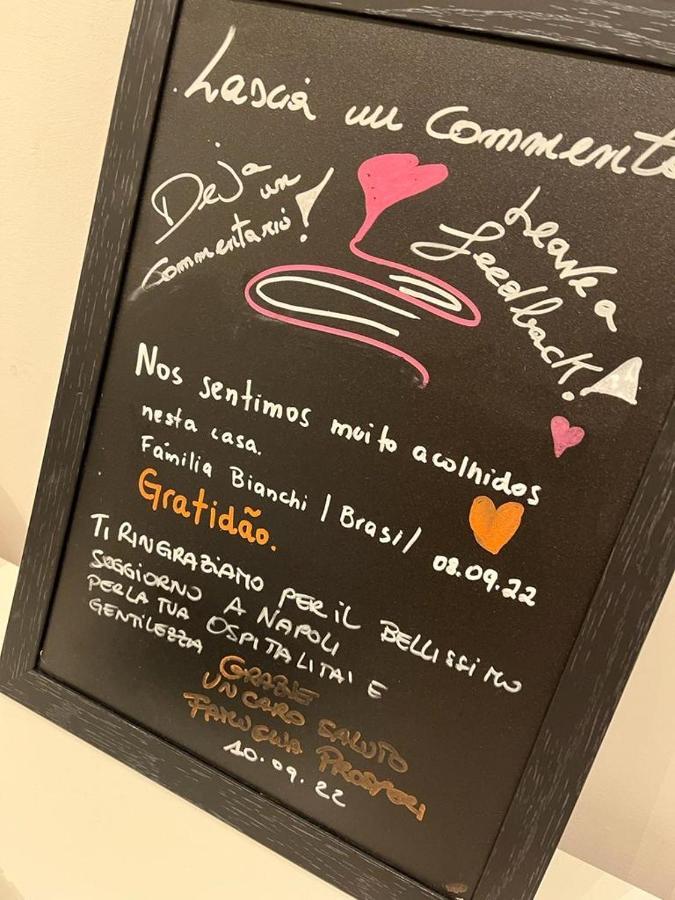 Lascia un commento
Deja un
commentario!
Leave a
feedback!
Nos sentimos muito acolhidos
nesta casa.
Família Bianchi | Brasil 08.09.22
Gratidão.
TI RINGRAZIAMO PER IL BELLISSIMO
SOGGIORNO A NAPOLI
PER LA TUA OSPITALITAI E
GENTILEZZA
GRAZIE
UN CARO SALUTO
FAMIGLIA PROSPERI
10.09.22